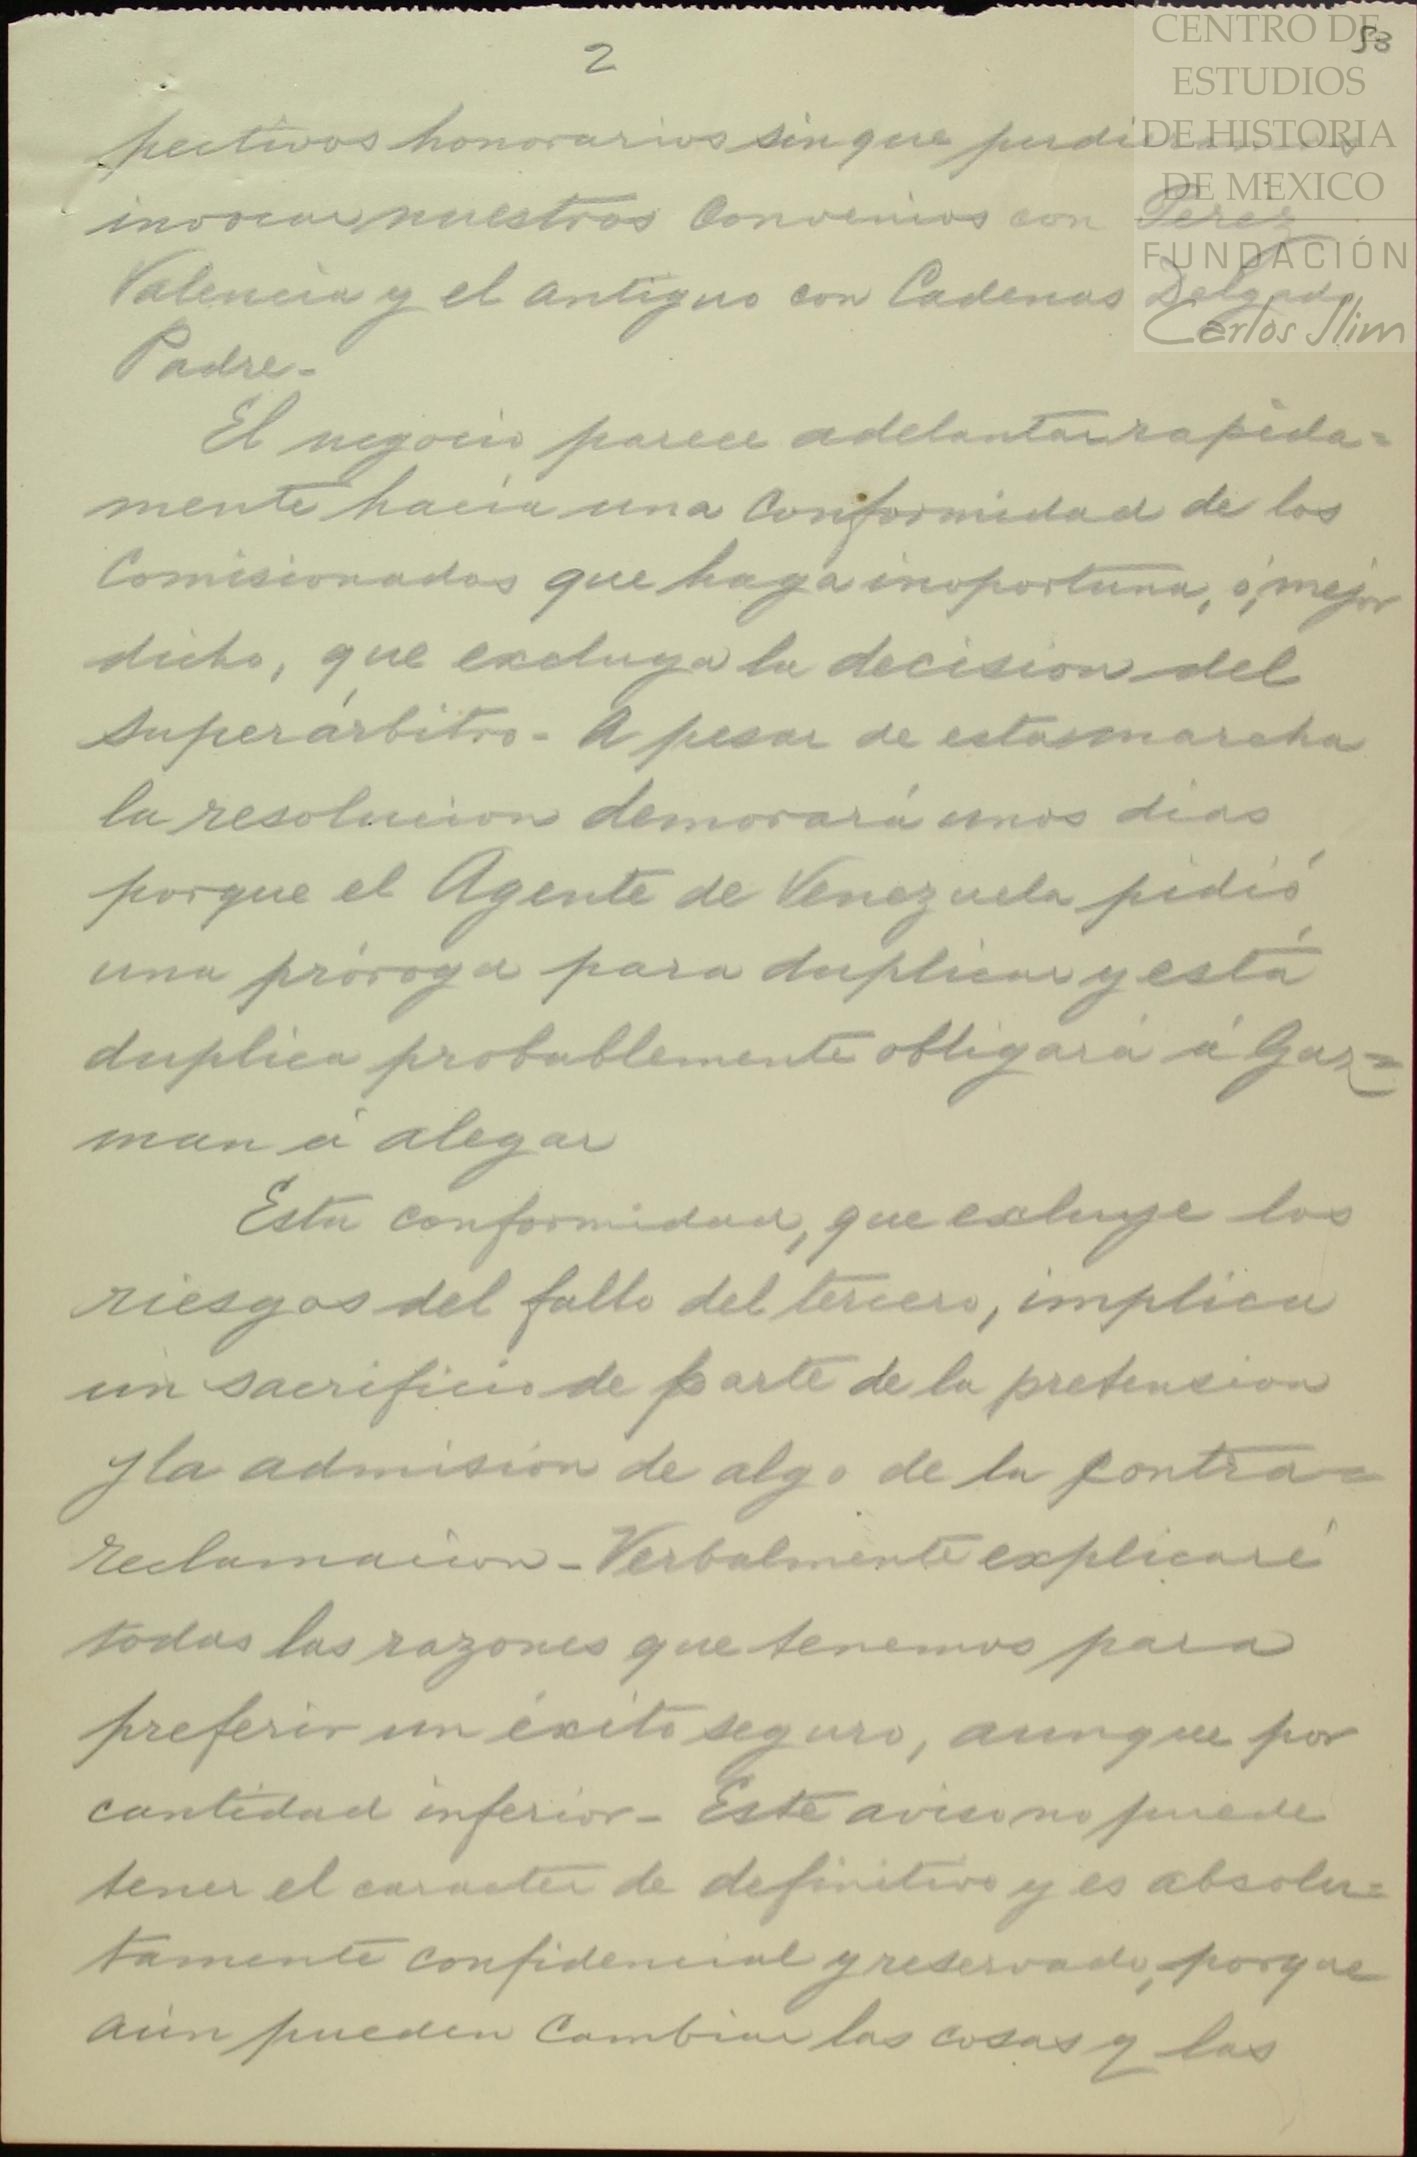 2
53
CENTRO DE
ESTUDIOS
DE HISTORIA
DE MEXICO
FUNDACIÓN
Carlos Slim
pectivos honorarios sin que
invocar nuestros Convenios con Perez
Valencia y el antiguo con Cadenas Delgado
Padre.
El negocio parece adelantar rapida=
mente hacia una Conformidad de los
Comisionados que haga inoportuna, ó, mejor
dicho, que excluya la decision del
Superárbitro - A pesar de esta marcha
la resolucion demorará unos dias
porque el Agente de Venezuela pidió
una próroga para duplicar y está
duplica probablemente obligará á Guz=
man á alegar
Esta conformidad, que exluye los
riesgos del fallo del tercero, implica
un sacrificio de parte de la pretension
y la admisión de algo de la contra=
reclamacion - Verbalmente explicaré
todas las razones que tenemos para
preferir un éxito seguro, aunque por
cantidad inferior - Este aviso no puede
tener el caracter de definitivo y es absolu=
tamente confidencial y reservado, porque
aún pueden Cambiar las cosas y las